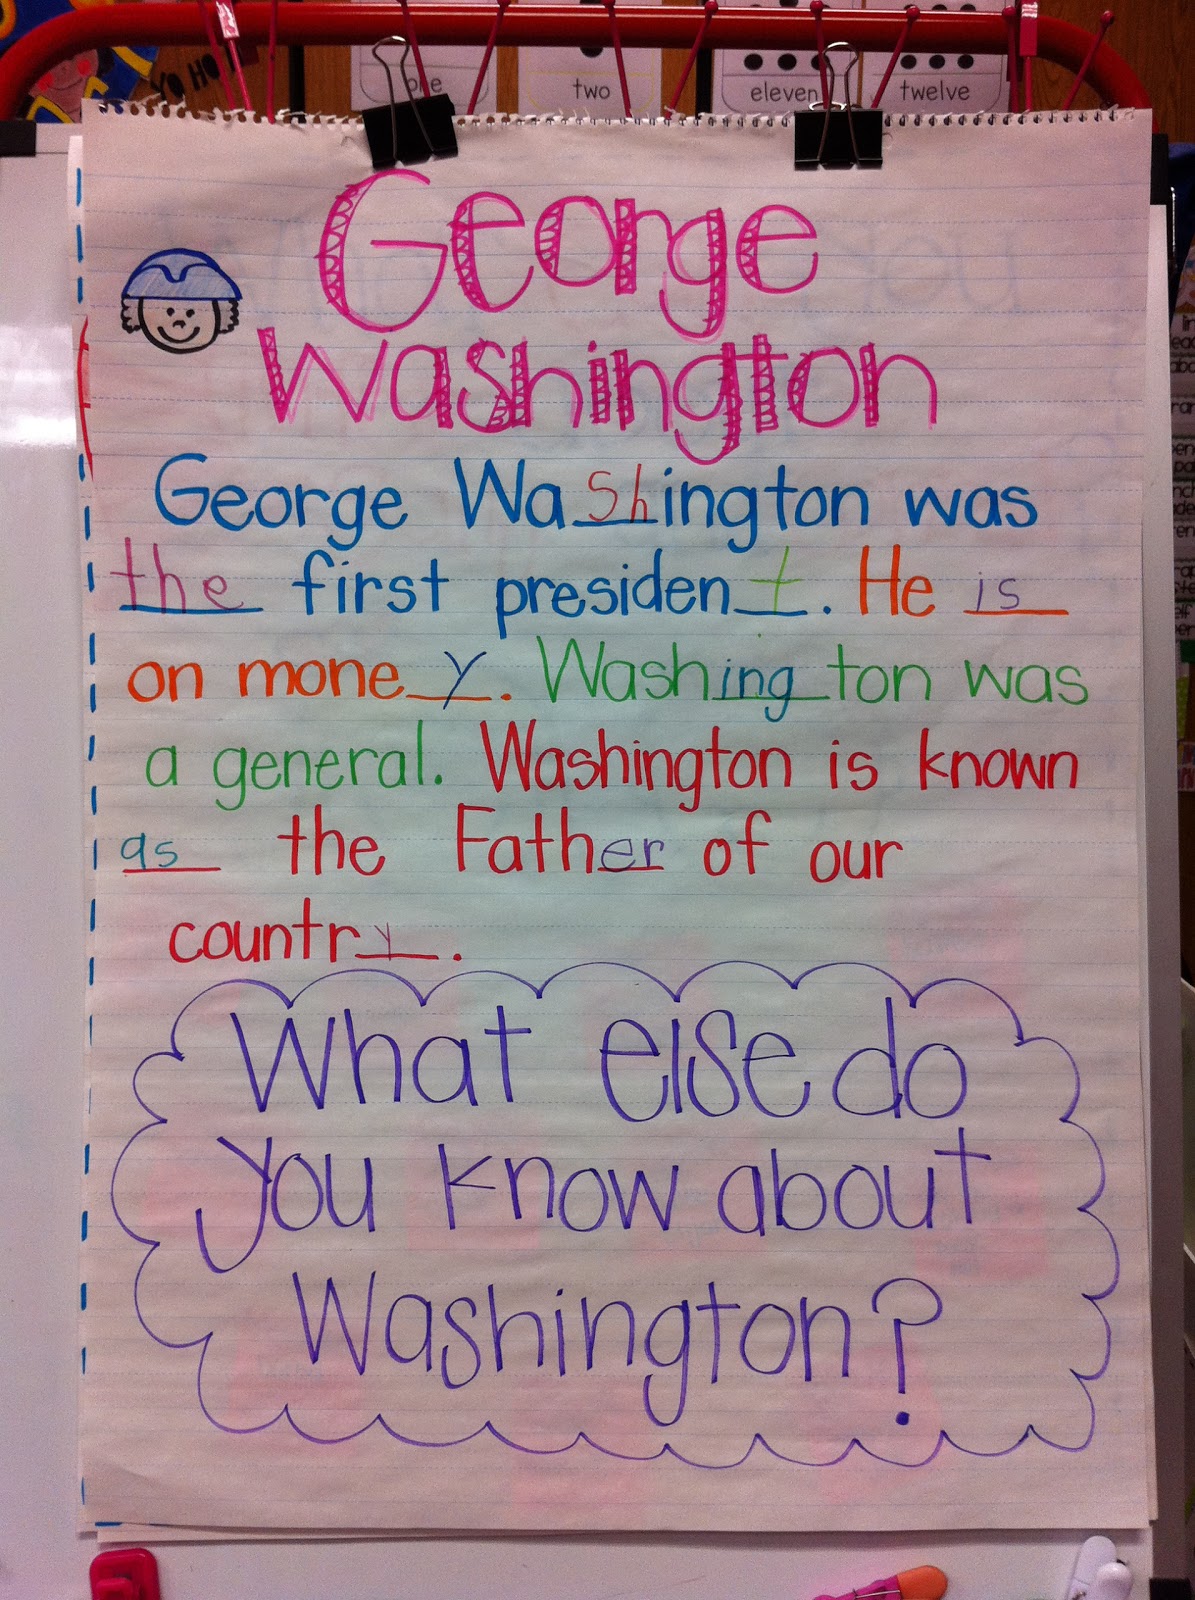 YO HO
one
two
eleven
twelve
George
Washington
George Washington was
the first president. He is
on money. Washington was
a general. Washington is known
as the Father of our
country.
What else do
you know about
Washington?